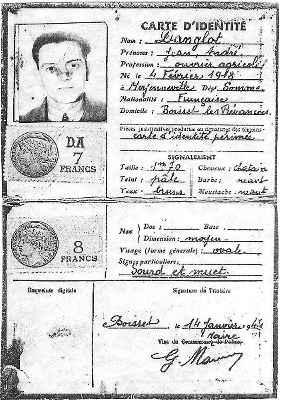 CARTE D'IDENTITÉ
Nom : Langlot
Prénoms : Jean André
Profession : ouvrier agricole
Né le 4 Février 1918
à Moyenneville Dép. Somme
Nationalité : Française
Domicile : Boisset-les-Prévanches
Pièces justificatives produites
carte d'identité périmée
SIGNALEMENT
Taille : 1m70 Cheveux : chatain
Teint : pâle Barbe : néant
Yeux : bruns Moustache : néant
DA
7
FRANCS
8
FRANCS
Nez
Dos : Base
Dimension : moyen
Visage (forme générale) : ovale
Signes particuliers :
sourd et muet
Empreinte digitale
Signature du Titulaire
Boisset, le 14 Janvier
Maire
Visa du Commissaire de Police